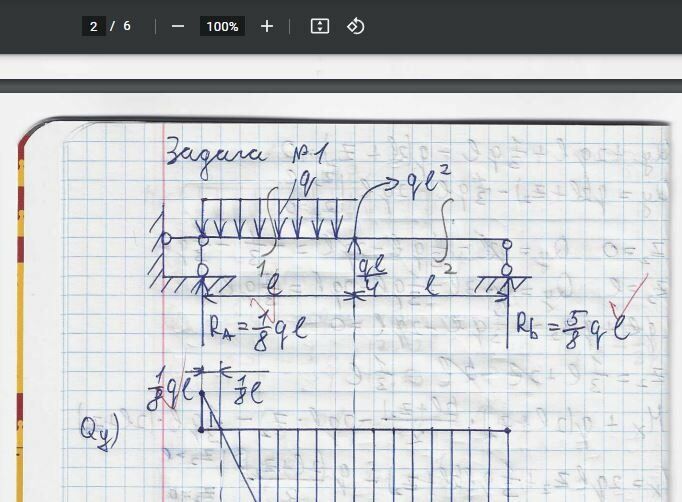 2 / 6
100%
Задача №1
q
ql²
1
ql/4
2
l
l
R_A = 1/8 ql
R_b = 5/8 ql
1/8 ql
1/8 l
Qy)